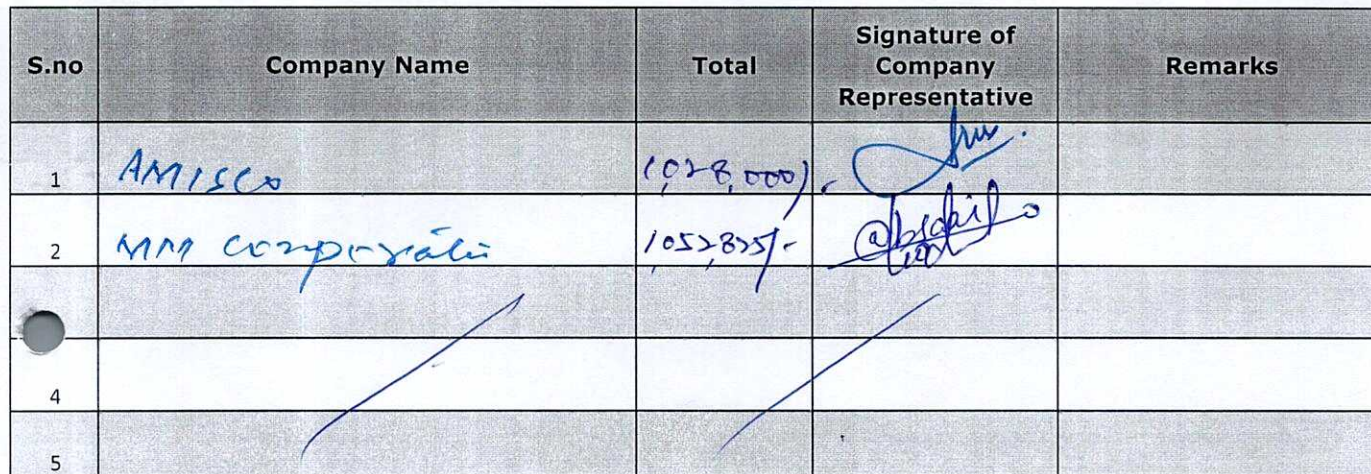 S.no Company Name Total Signature of Company Representative Remarks
1 AMISCO 1,028,000/-
2 MM Corporation 1,052,825/-
4
5